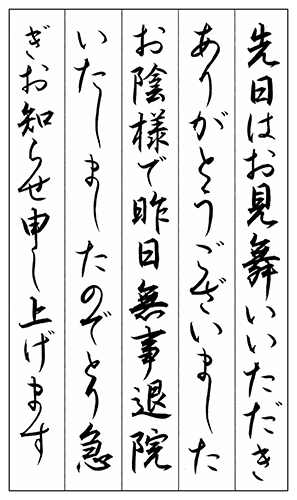 先日はお見舞いいただき
ありがとうございました
お陰様で昨日無事退院
いたしましたのでとり急
ぎお知らせ申し上げます